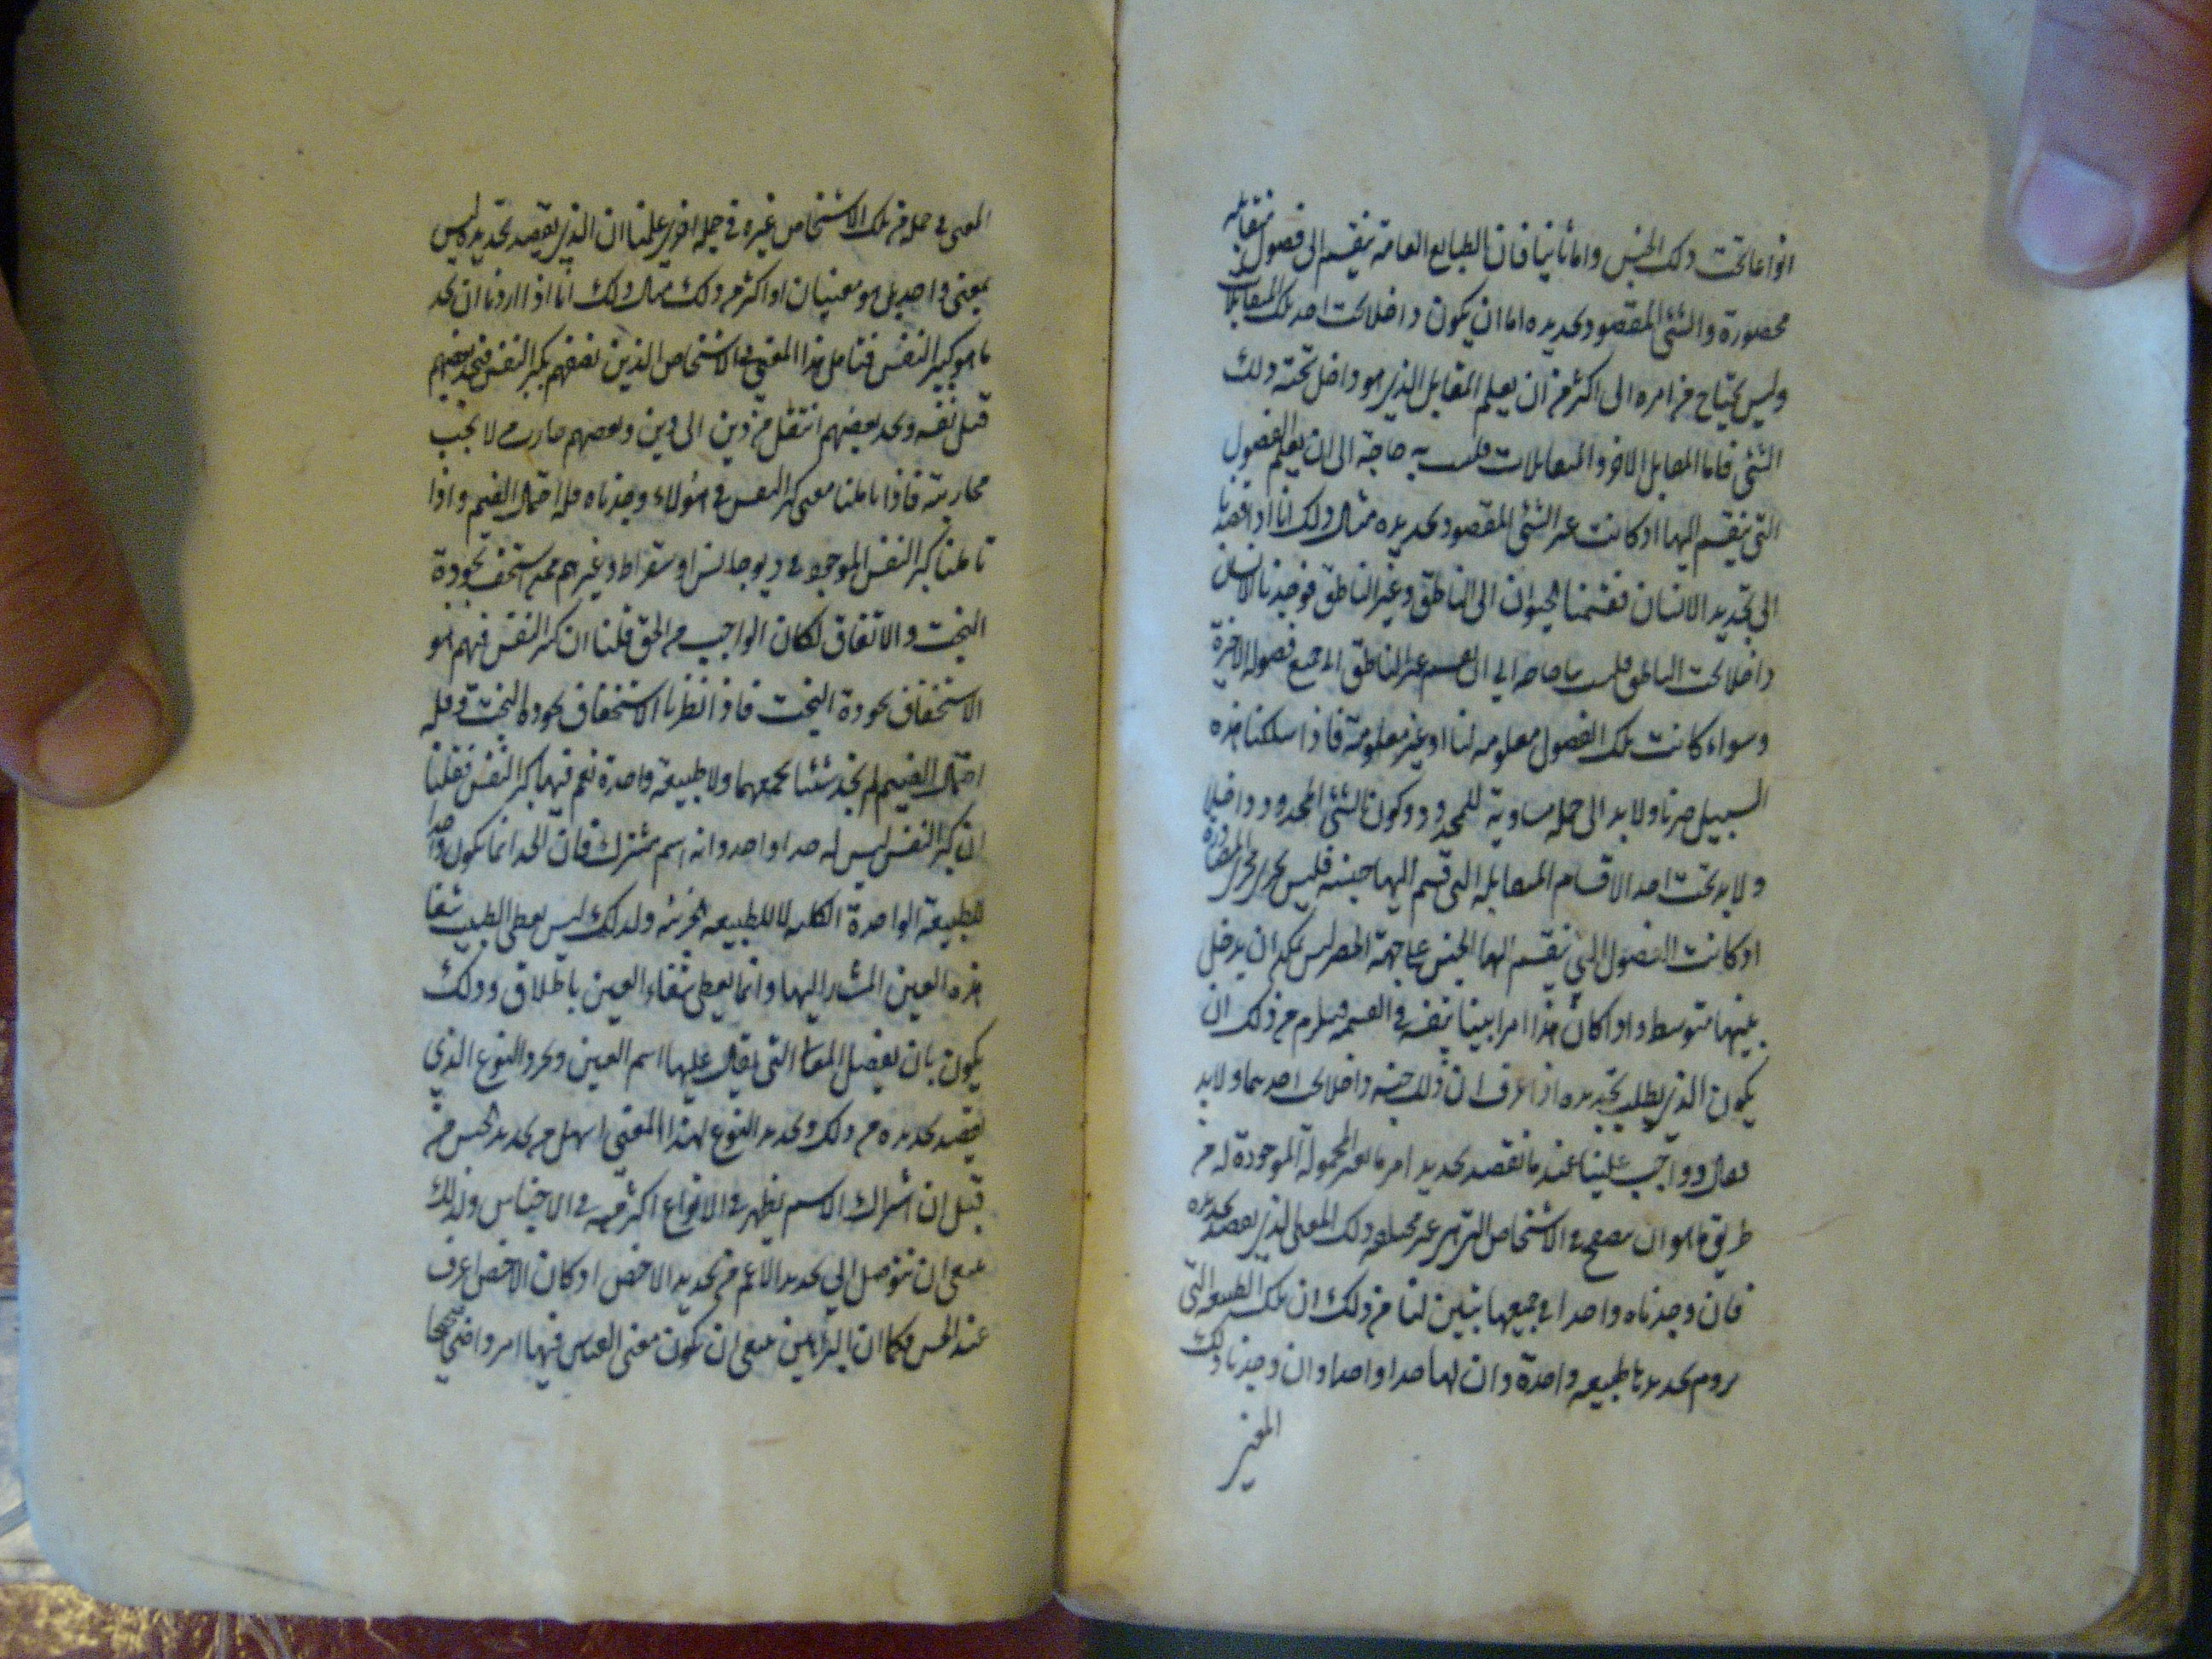 انواعا تحت ذلك الجنس واما ثانيا فان الطبايع العامة ينقسم الى فصول متقابلة
محصورة والشئ المقصود تحديده اما ان يكون داخلا تحت احد تلك المتقابلات
وليس يحتاج من امره الى اكثر من ان يعلم المقابل الذي هو داخل تحته ذلك
الشئ فاما المقابل الاخر والمتقابلات فليست به حاجة الى ان يعلم الفصول
التي ينقسم اليها اذ كانت غير الشئ المقصود تحديده مثال ذلك انا اذا قصدنا
الى تحديد الانسان فقسمنا الحيوان الى الناطق وغير الناطق فوجدنا الانسان
داخلا تحت الناطق فليست بنا حاجة الى ان يقسم غير الناطق الى جميع فصوله الاخيرة
وسواء كانت تلك الفصول معلومه لنا او غير معلومة فاذا سلكنا هذه
السبيل صرنا ولا بد الى جمله مساوية للمحدود وكون الشئ المحدود داخلا
ولا بد تحت احد الاقسام المتقابله التي قسم اليها جنسه فليس يجري مجرى المصادرة
اذ كانت الفصول التي ينقسم اليها الجنس على جهة الحصر ليس يمكن ان يدخل
بينها متوسط واذا كان هذا امرا بينا بنفسه في القسمه فيلزم من ذلك ان
يكون الذي يطلب تحديده اذا عرف ان ذلك جنسه داخلا في احدهما ولا بد
قال وواجب علينا عند ما نقصد تحديد امر ما المحمولة الموجودة له من
طريق ما هو ان نتصفح الاشخاص التي هي غير مختلفه ذلك المعنى الذي نقصد تحديده
فان وجدناه واحدا في جميعها تبين لنا من ذلك ان تلك الطبيعه التي
نروم تحديدنا طبيعه واحدة وان لها حدا واحدا وان وجدنا ذلك
المعنى
المعنى في جمله من تلك الاشخاص غيره في جمله اخرى علمنا ان الذي نقصد تحديده ليس
بمعنى واحد بل هو معنيان او اكثر من ذلك مثال ذلك انا اذا اردنا ان نحد
ما هو كبير النفس فنتامل هذا المعنى في الاشخاص الذين نصفهم بكبر النفس فنجد بعضهم
قتل نفسه ونجد بعضهم انتقل من دين الى دين وبعضهم حارب من لا يجب
محاربته فاذا تاملنا معنى كبر النفس في هؤلاء وجدناه قلة احتمال الضيم واذا
تاملنا كبر النفس الموجود في ديوجانس او سقراط وغيرهم ممن استخف بجودة
البخت والاتفاق لكان الواجب من الحق قلنا ان كبر النفس فيهم هو
الاستخفاف بجودة البخت فاذا نظرنا الاستخفاف بجودة البخت وقله
احتمال الضيم لم نجد شئا يجمعهما ولا طبيعة واحدة تعم فيها كبر النفس فقلنا
ان كبر النفس ليس له حدا واحد وانه اسم مشترك فان الحد انما يكون واحدا
للطبيعة الواحدة الكليه لا للطبيعه الجزئيه ولذلك ليس يعطي الطبيب شفا
هذه العين المشار اليها وانما يعطي شفاء العين باطلاق وذلك
يكون بان يفصل المعاني التي يقال عليها اسم العين ويحد النوع الذي
يقصد تحديده من ذلك وتحديد النوع لهذا المعنى اسهل من تحديد الجنس من
قبل ان اشتراك الاسم يظهر في الانواع اكثر منه في الاجناس ولذلك
ينبغي ان نتوصل الى تحديد الاعم من تحديد الاخص اذ كان الاخص اعرف
عند الحس فكما ان البراهين ينبغي ان تكون معنى القياس فيها امر واضح صحيحا